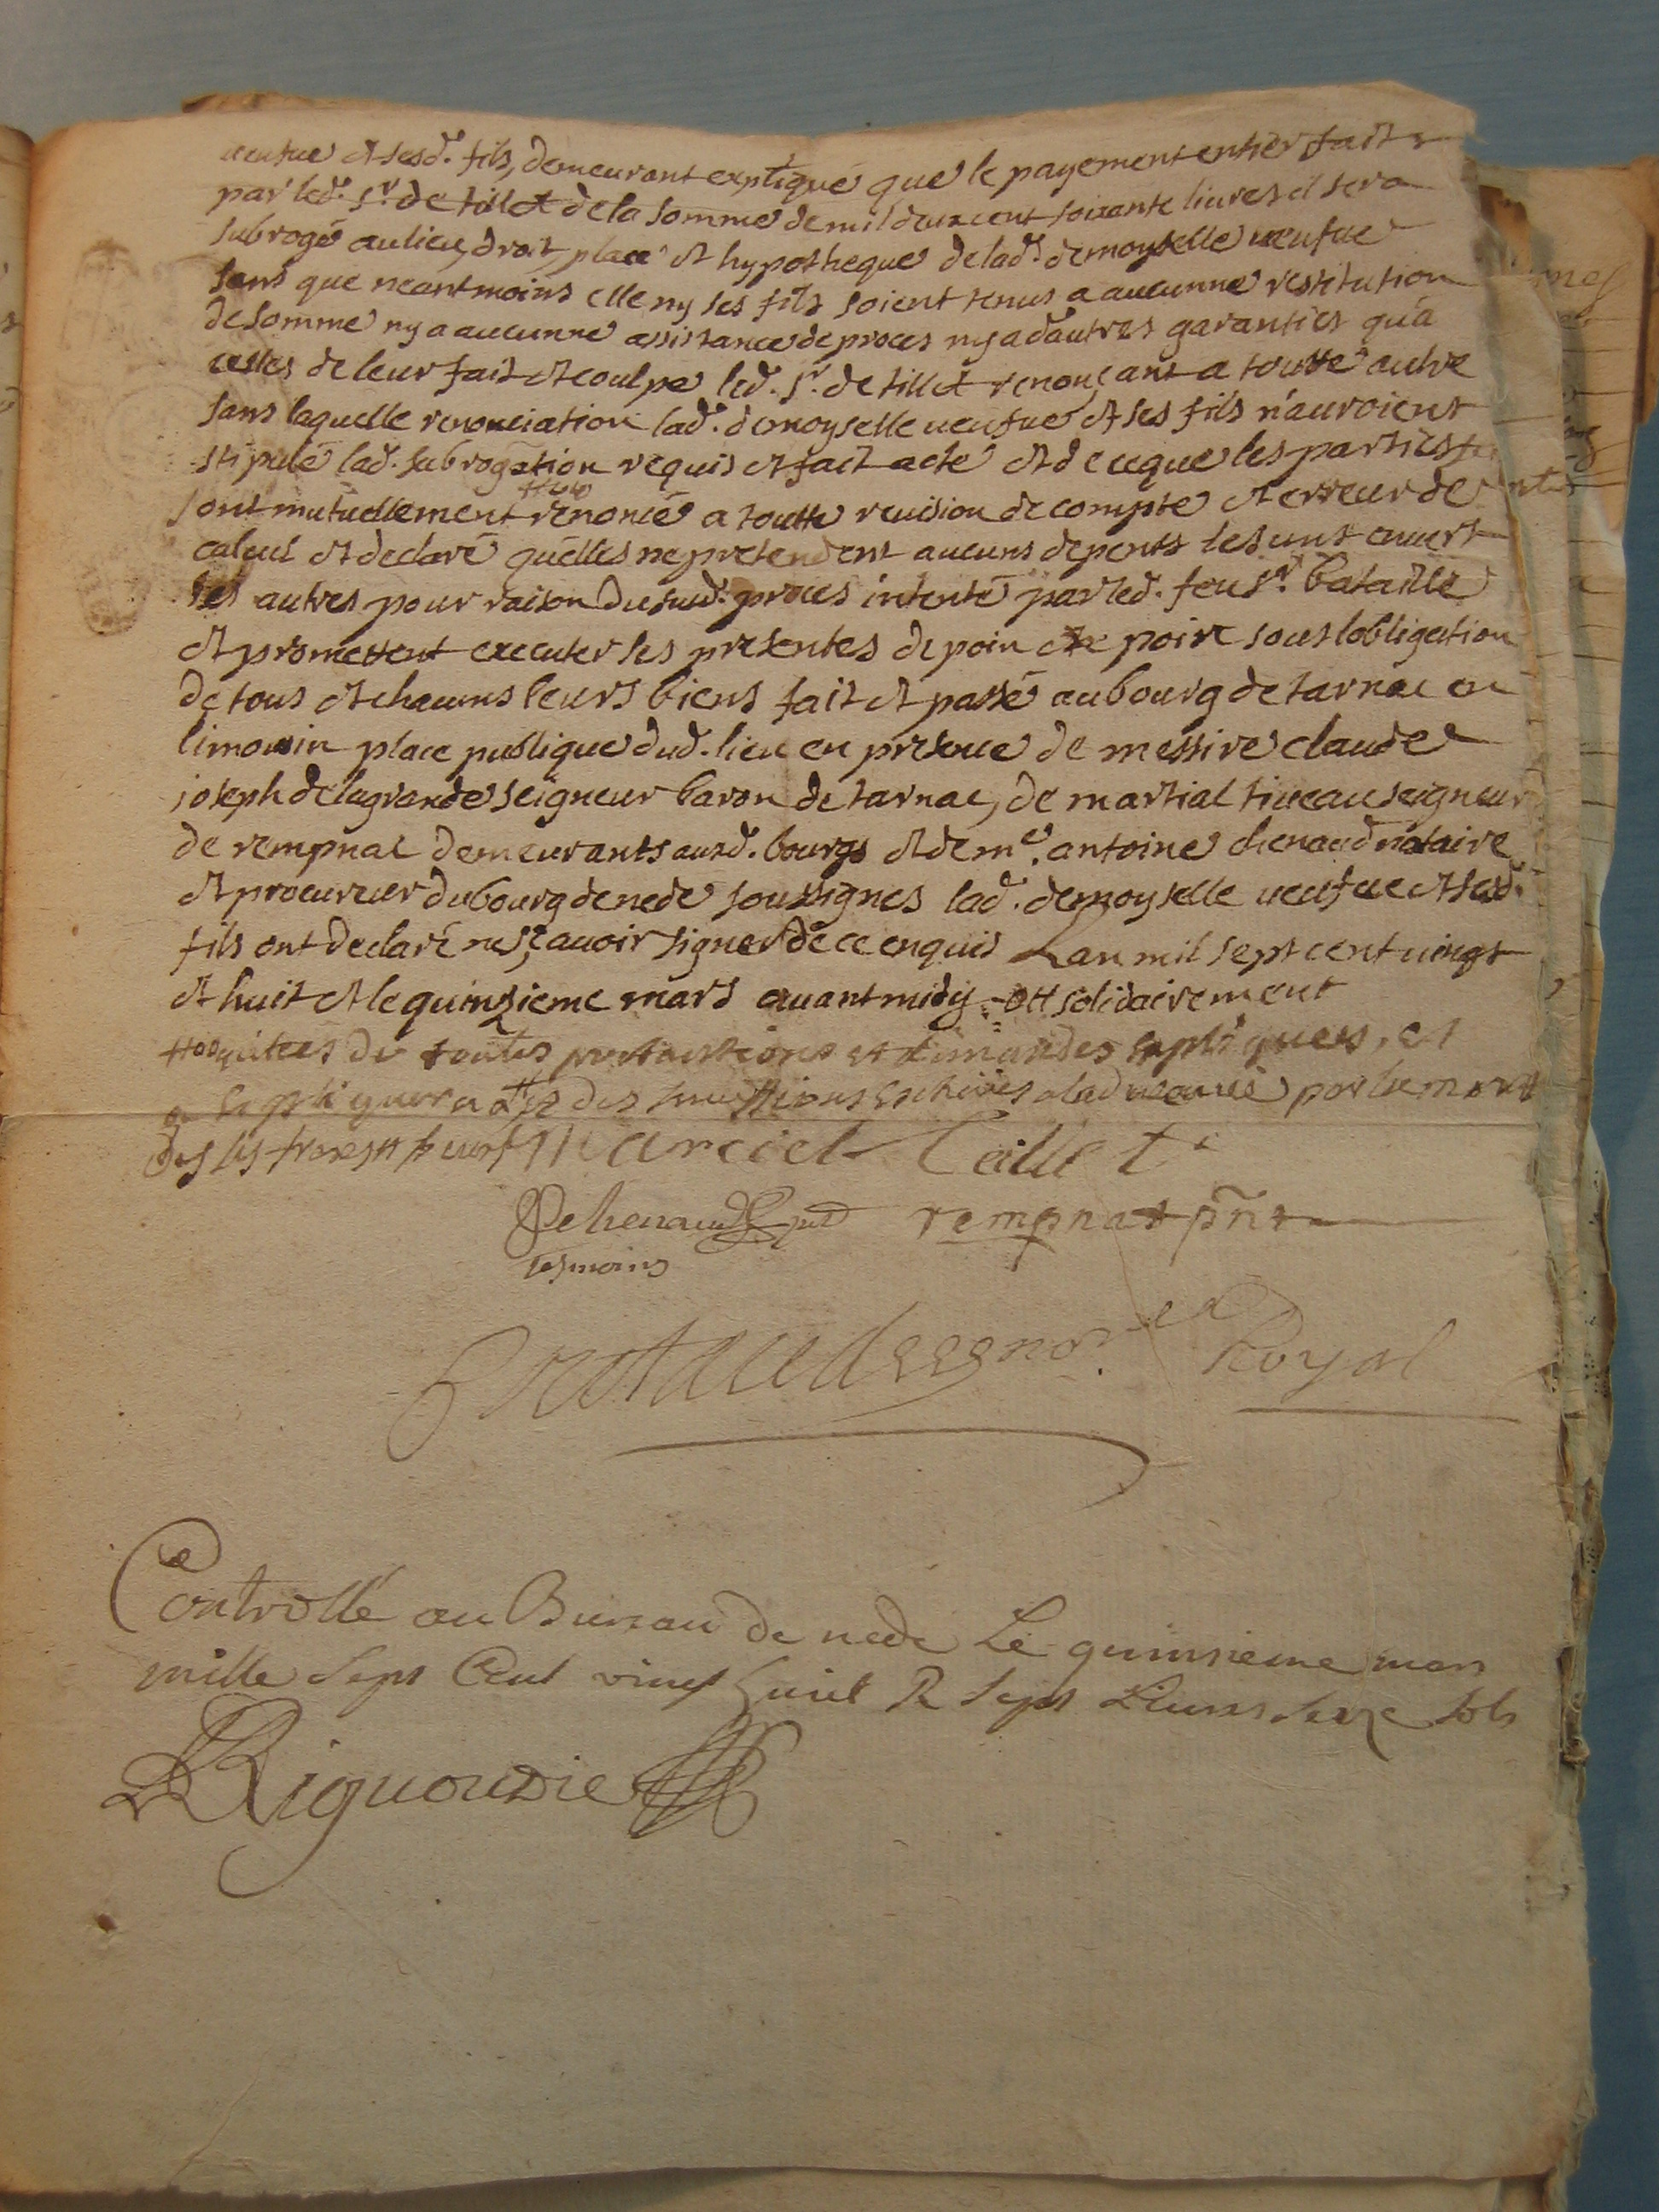 veufue et sesd. fils, demeurant expliqué que le payement entier fait
par led. sr. de tillet de la somme de mil deux cent soixante livres il sera
subrogé au lieu, droit, place et hypotheque de lad. demoyselle veufue
sans que neantmoins elle ny ses fils soient tenus a aucunne restitution
de somme ny a aucunne assistance de proces ny a d'autres garanties qu'a
celles de leur fait et coulpe led. sr. de tillet renonçant a toutte autre
sans laquelle renonciation lad. demoyselle veufue et ses fils n'auroient
stipulé lad. subrogation requis et fait acte et de ce que les parties se
sont mutuellement renoncé a toutte revision de compte et erreur de
calcul et declaré qu'elles ne pretendent aucuns depents les uns envers
les autres pour raison du susd. proces intenté par led. feu sr. bataille
et promettent executer les presentes de poin en poin sous l'obligation
de tous et chacuns leurs biens fait et passé au bourg de tarnac en
limousin place publique dud. lieu en presence de messire claude
joseph de lagrande seigneur baron de tarnac, de martial tiveau seigneur
de rempnat demeurants auxd. bourgs et de me. antoine chenaud notaire
et procureur du bourg de nede soussignes lad. demoyselle veufue et sesd.
fils ont declaré ne sçavoir signer de ce enquis Lan mil sept cent vingt
et huit et le quinzieme mars avant midy solidairement
quittées de toutes pretentions et demandes expliquees, et
a expliquer des successions eschües a lad veufue par la mort
des ses freres Marciel Teillet
Dechenaud
rempnat pñt
tesmoins
nore Royal
Controllé au Bureau de nede Le quinsieme mars
mille Sept Cent vingt huit R Sept Liures Seze Sols
Rigoudie